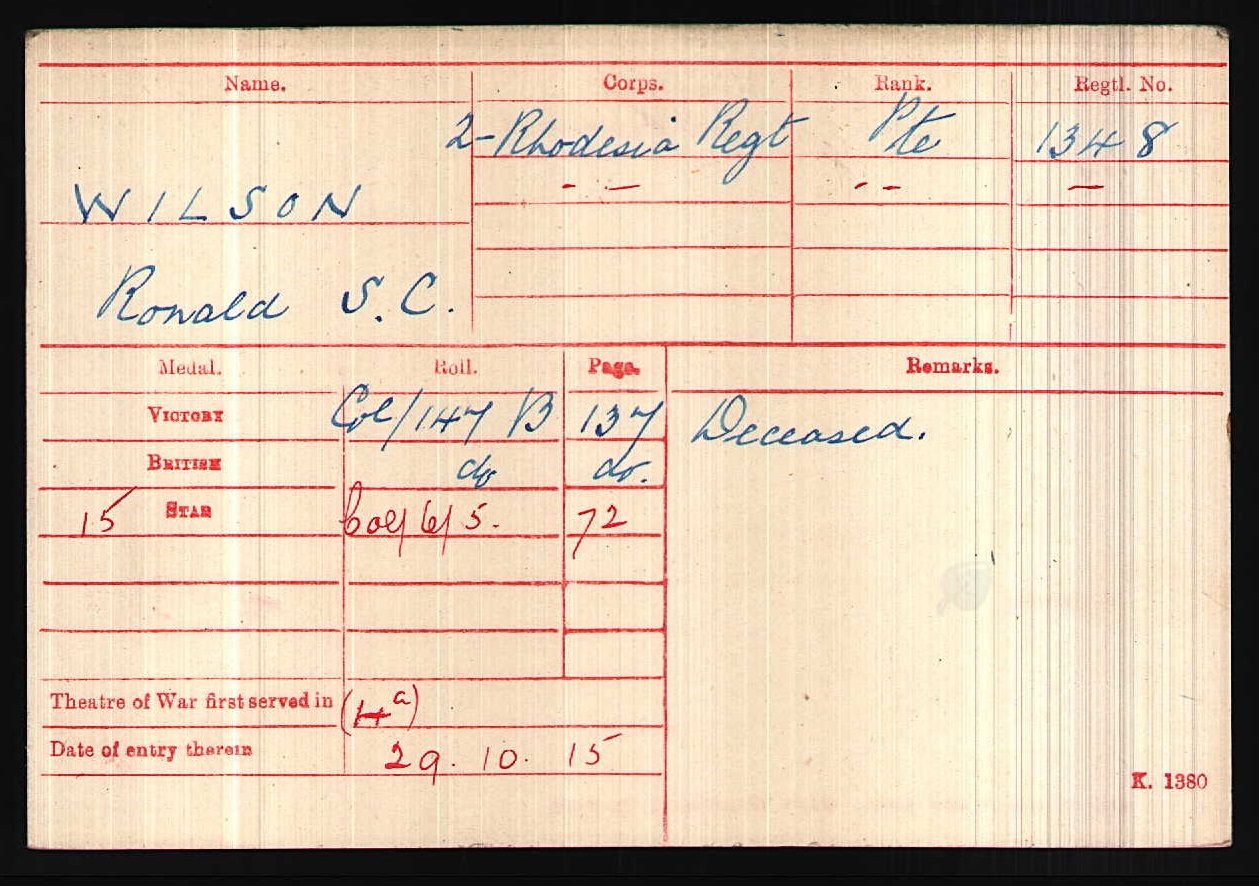 Name. Corps. Rank. Regtl. No.
2-Rhodesia Regt Pte 1348
WILSON - — - - —
Ronald S.C.
Medal. Roll. Page. Remarks.
VICTORY Col/147 B 137 Deceased.
BRITISH do do.
15 STAR Col/6/5. 72
Theatre of War first served in (4a)
Date of entry therein 29. 10. 15
K. 1380